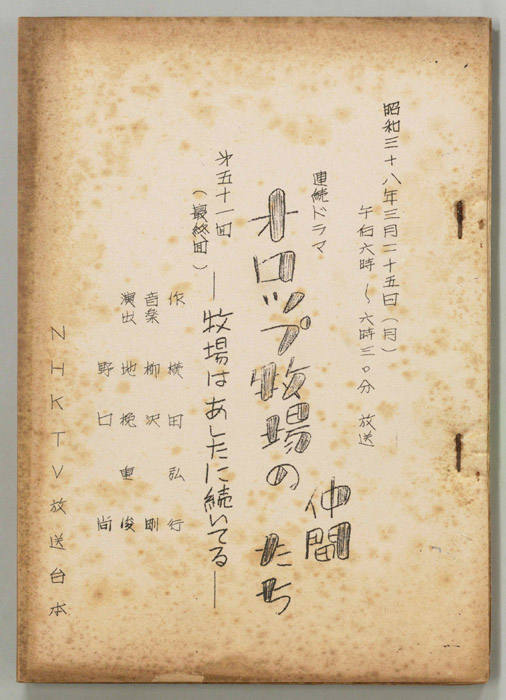 昭和三十八年三月二十五日（月）
午后六時〜六時三〇分 放送
連続ドラマ
オロップ牧場の仲間たち
㐧五十一回
（最終回）
―牧場はあしたに続いてる―
作 横田弘行
音楽 柳沢剛
演出 地挽重俊
野口尚
NHKTV放送台本